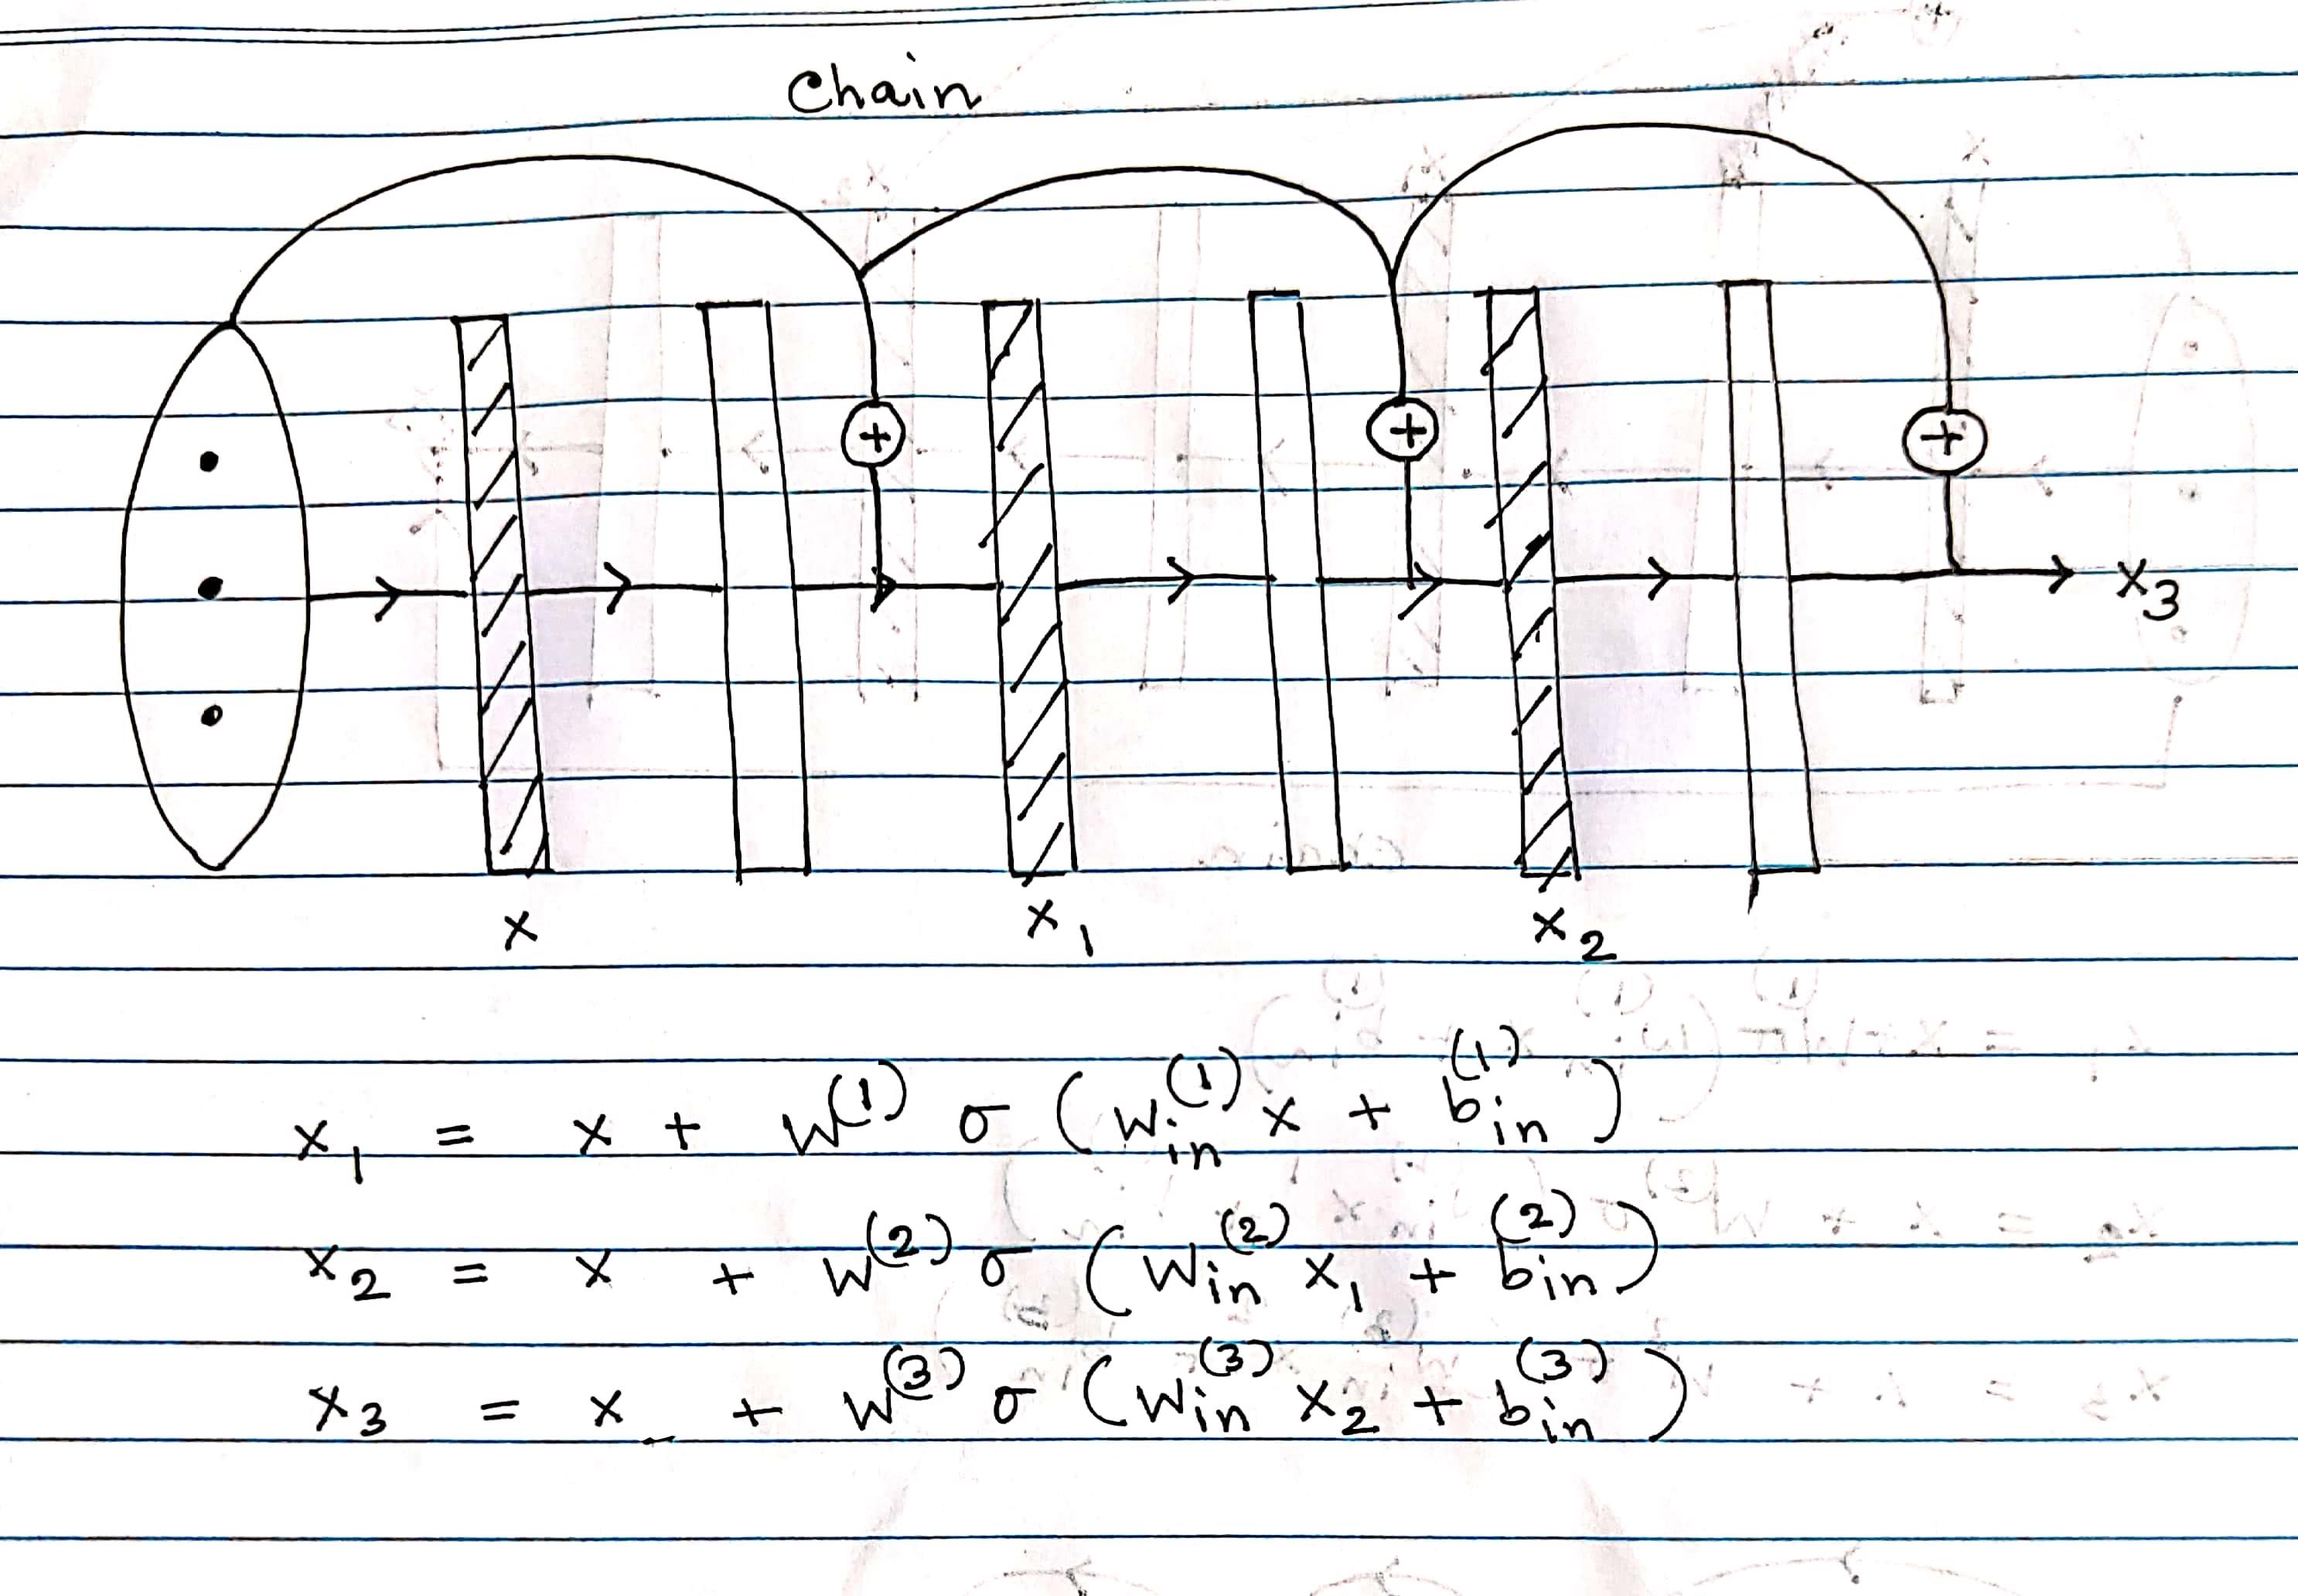 Chain
+ + +
x₃
x x₁ x₂
x₁ = x + W⁽¹⁾ σ (W_in⁽¹⁾ x + b_in⁽¹⁾)
x₂ = x + W⁽²⁾ σ (W_in⁽²⁾ x₁ + b_in⁽²⁾)
x₃ = x + W⁽³⁾ σ (W_in⁽³⁾ x₂ + b_in⁽³⁾)